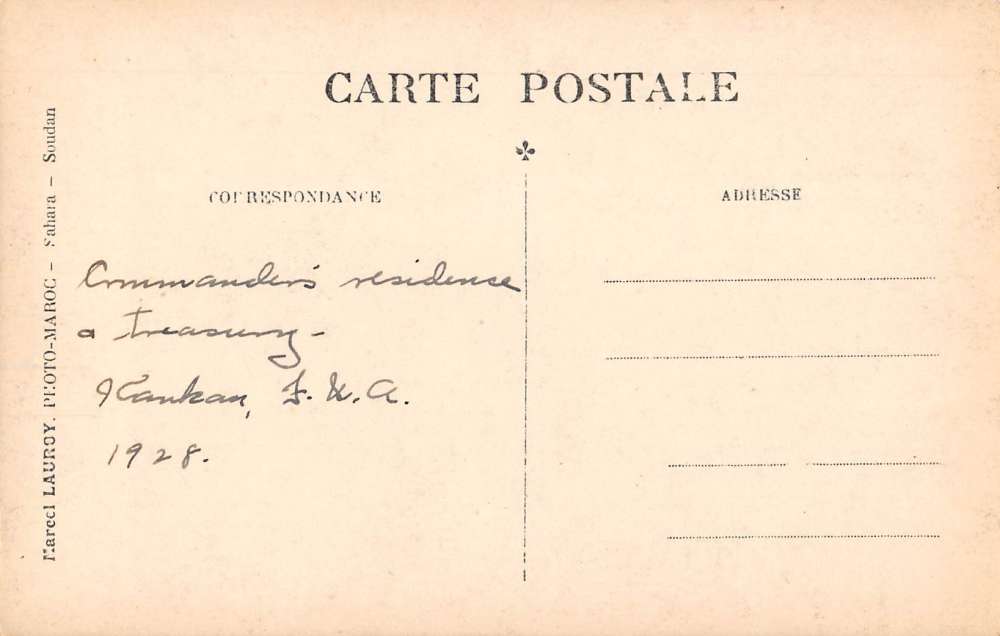 CARTE POSTALE
CORRESPONDANCE
ADRESSE
Commander's residence
a treasury-
Kankan, F. W. A.
1928.
Marcel LAUROY. PHOTO-MAROC - Sahara - Soudan